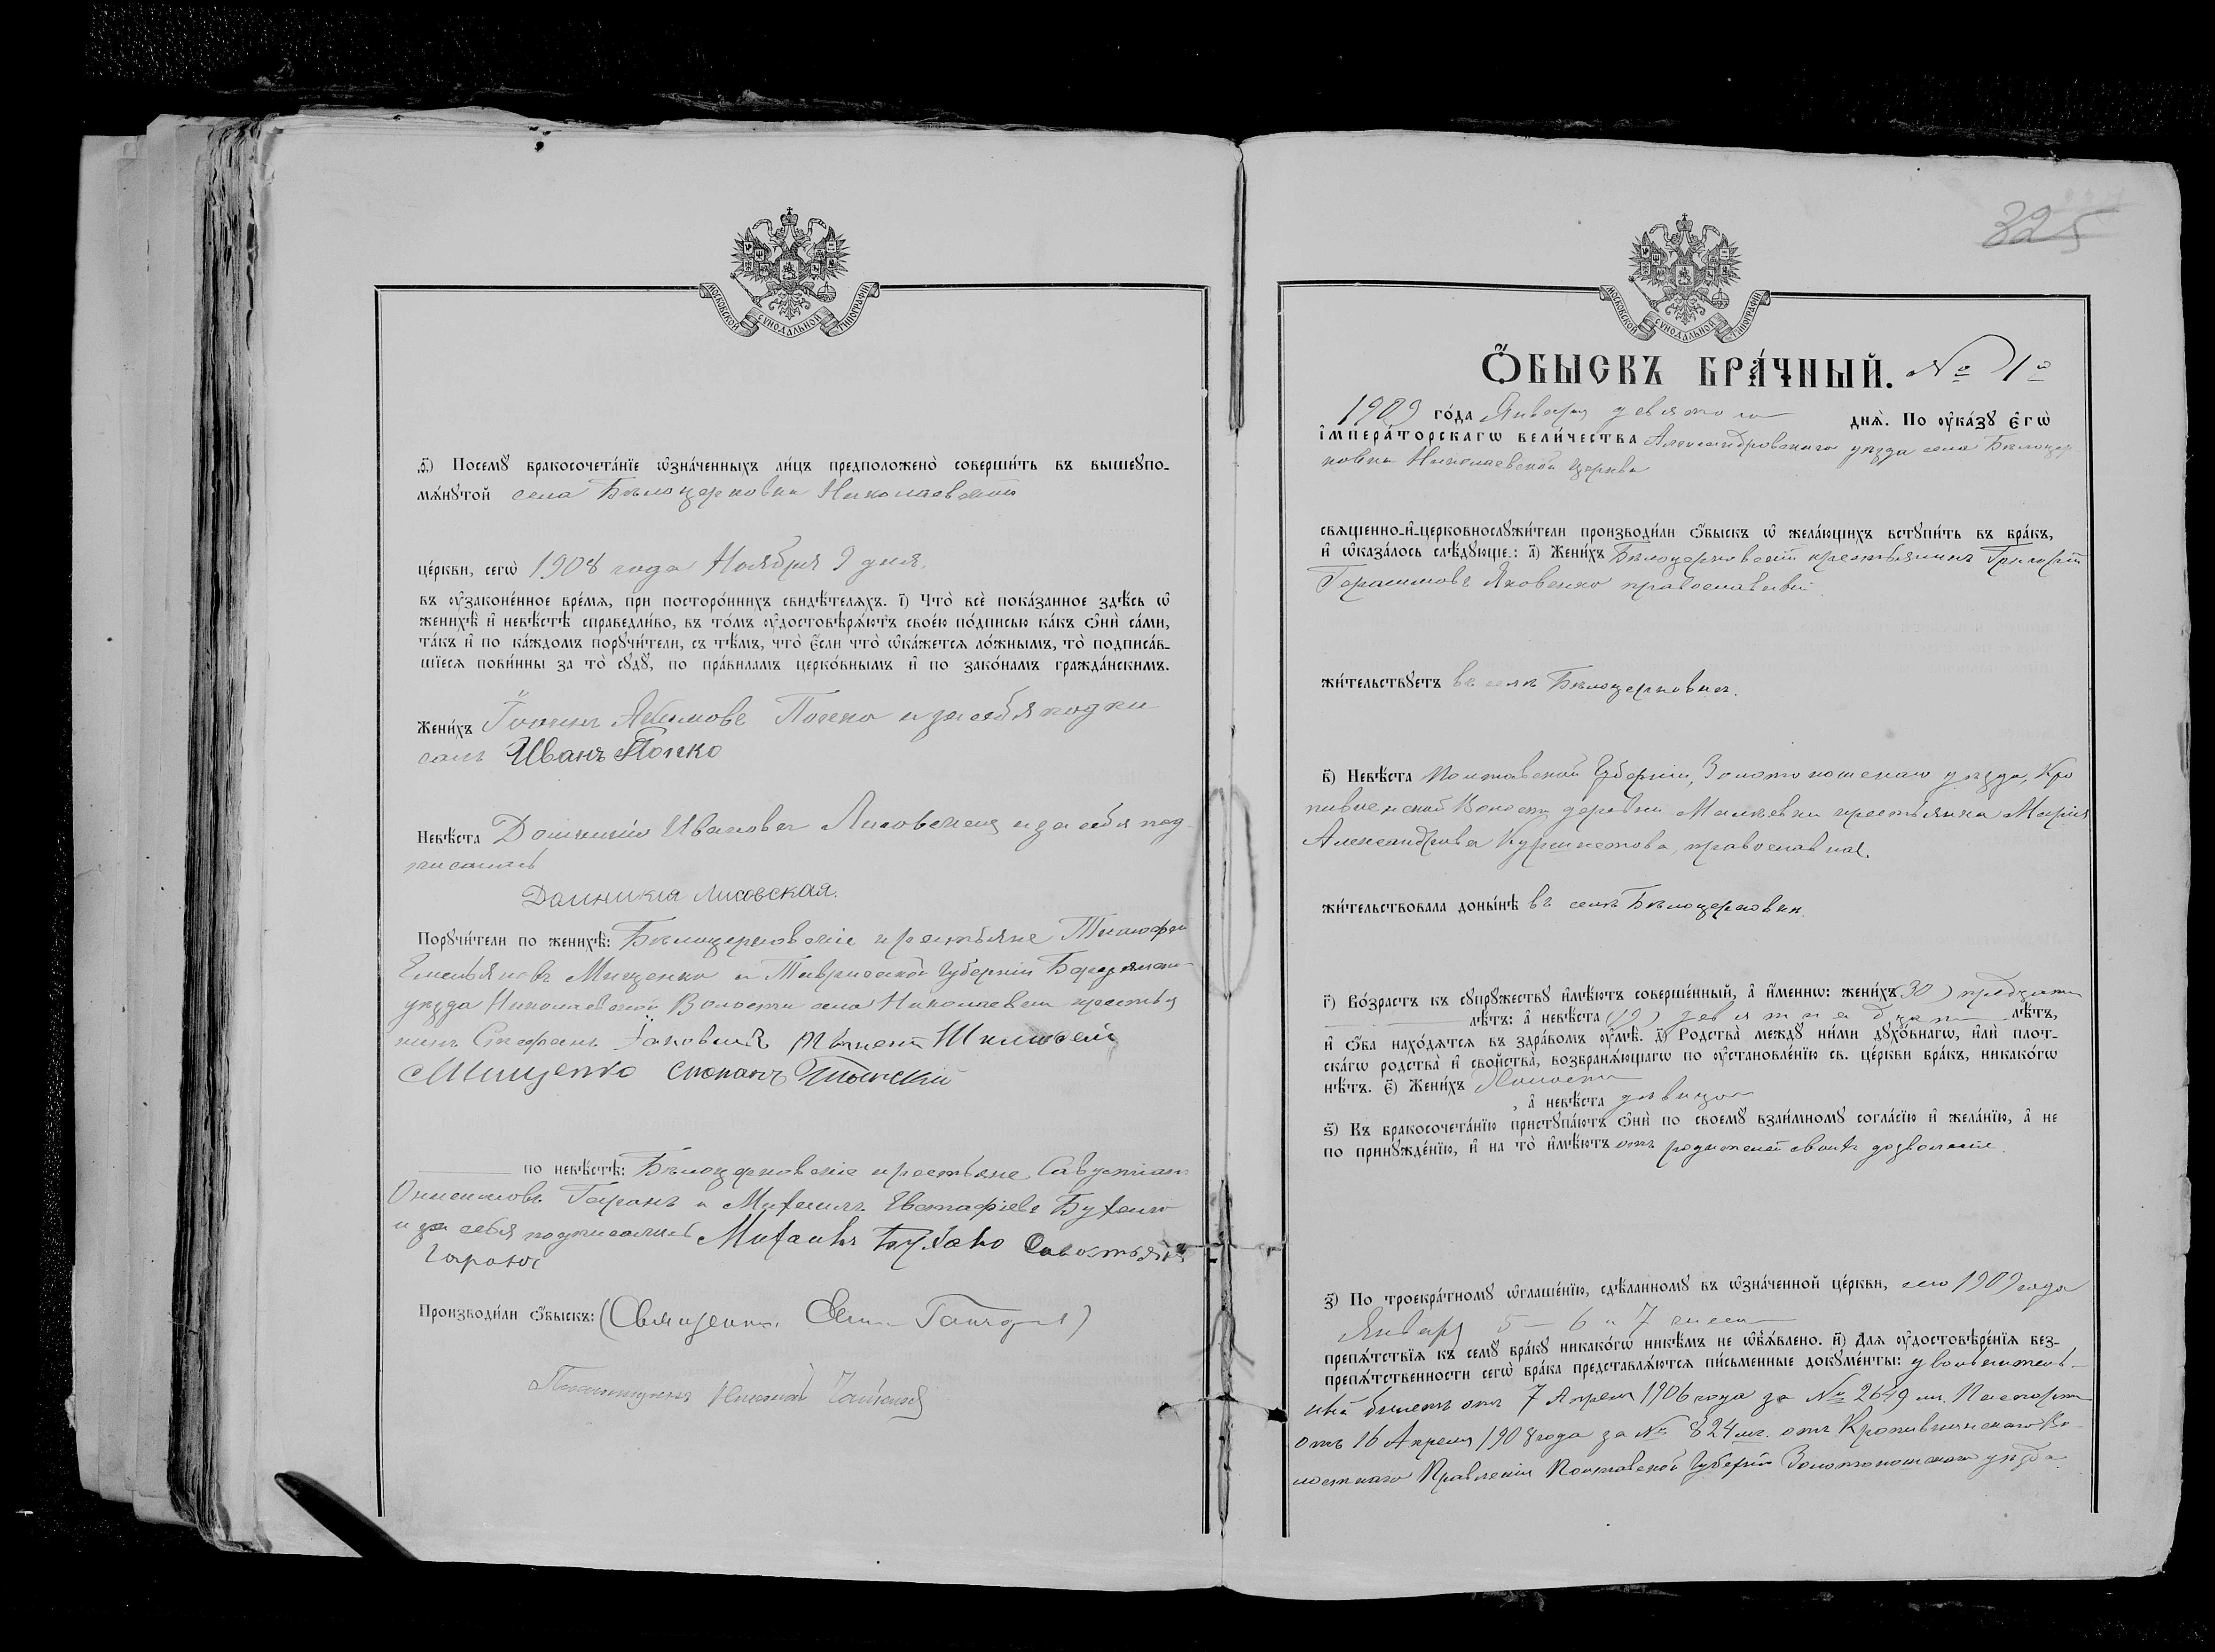 МОСКОВСКОЙ СѴНОДАЛЬНОЙ ТИПОГРАФІИ
ѳ҃) Посемꙋ бракосочета́нїе ѡ҆зна́ченныхъ ли́цъ предположено̀ соверши́ть въ вышеꙋпо-
мѧ́нꙋтой села Бѣлоцерковки Николаевской
це́ркви, сегѡ̀ 1908 года Ноября 9 дня.
въ оу҆зако́ненное вре́мѧ, при посторо́ннихъ свидѣ́телѧхъ. і҃) Что̀ всѐ пока́занное здѣ́сь ѡ҆
женихѣ̀ и҆ невѣ́стѣ справедли́во, въ то́мъ оу҆достовѣрѧ́ютъ свое́ю по́дписью ка́къ ѻ҆нѝ са́ми,
та́къ и҆ по ка́ждомъ порꙋчи́тели, съ тѣ́мъ, что̀ є҆́сли что̀ ѡ҆ка́жетсѧ ло́жнымъ, то̀ подписа́в-
шїесѧ пови́нны за то̀ сꙋдꙋ̀, по пра́виламъ церко́внымъ и҆ по зако́намъ гражда́нскимъ.
Жени́хъ Іоаннъ Попко и за себя подпи
салъ Иванъ Попко
Невѣ́ста Домникія Иванова Лисовская и за себя под
писалась
Домникия Лисовская.
Порꙋчи́тели по женихѣ̀: Бѣлоцерковскіе крестьяне Тимофей
Емельяновъ Мищенко и Таврической Губерніи Бердянскаго
уѣзда Николаевской Волости села Николаевки крестья
нинъ Стефанъ
Мищенко Степанъ
по невѣ́стѣ: Бѣлоцерковскіе крестьяне Савустіанъ
Онисимовъ Гаранъ и Михаилъ Евстафіевъ Бухало
и за себя подписались Михаилъ Бухало Савостьян
Гаранъ
Производи́ли ѻ҆́быскъ: (Священникъ
Псаломщикъ Николай
325
МОСКОВСКОЙ СѴНОДАЛЬНОЙ ТИПОГРАФІИ
Ѻ҆́БЫСКЪ БРА́ЧНЫЙ. № 1й
1909 го́да Января девятого днѧ̀. По оу҆ка́зꙋ Є҆гѡ̀
І҆мпера́торскагѡ вели́чества Александровскаго уѣзда села Бѣлоцер
ковки Николаевской церкви
свѧщенно-и҆-церковнослꙋжи́тели производи́ли ѻ҆́быскъ ѡ҆ жела́ющихъ встꙋпи́ть въ бра́къ,
и҆ ѡ҆каза́лось слѣ́дꙋющее: а҃) Жени́хъ Бѣлоцерковскій крестьянинъ Григорій
Герасимовъ Яковенко православный
жи́тельствꙋетъ въ селѣ Бѣлоцерковкѣ.
в҃) Невѣ́ста Полтавской Губерніи, Золотоношскаго уѣзда, Кро
пивенской Волости деревни Малкевки крестьянка Марія
Александрова православная.
жи́тельствовала доны́нѣ въ селѣ Бѣлоцерковкѣ.
г҃) Во́зрастъ къ сꙋпрꙋ́жествꙋ и҆мѣ́ютъ соверше́нный, а҆ и҆́менно: жени́хъ (30) тридцати
лѣ́тъ: а҆ невѣ́ста (19) девятнадцати лѣ́тъ,
и҆ ѻ҆́ба нахо́дѧтсѧ въ здра́вомъ оу҆мѣ̀. д҃) Родства̀ междꙋ̀ ни́ми дꙋхо́внагѡ, и҆лѝ плот-
ска́гѡ родства̀ и҆ сво́йства̀, возбранѧ́ющагѡ по оу҆становле́нїю св. це́ркви бра́къ, никако́гѡ
нѣ́тъ. є҃) Жени́хъ Холостъ
, а҆ невѣ́ста дѣвица
ѕ҃) Къ бракосочета́нїю пристꙋпа́ютъ ѻ҆нѝ по своемꙋ̀ взаи́мномꙋ согла́сїю и҆ жела́нїю, а҆ не
по принꙋжде́нїю, и҆ на то̀ и҆мѣ́ютъ отъ родителей своихъ дозволеніе.
з҃) По троекра́тномꙋ ѡ҆глаше́нїю, сдѣ́ланномꙋ въ ѡ҆зна́ченной це́ркви, сего 1909 года
Января 5 — 6 и 7 числа
препѧ́тствїѧ къ семꙋ̀ бра́кꙋ никако́гѡ никѣ́мъ не ѡ҆б̾ѧ́влено. и҃) Длѧ оу҆достовѣре́нїѧ без-
препѧ́тственности сегѡ̀ бра́ка представлѧ́ютсѧ пи́сьменные докꙋме́нты: увольнитель-
ный билетъ отъ 7 Апреля 1906 года за № 2649 Паспортъ
отъ 16 Апреля 1908 года за № 824 отъ Кропивянскаго Во
лостнаго Правленія Полтавской Губерніи Золотоношскаго уѣзда